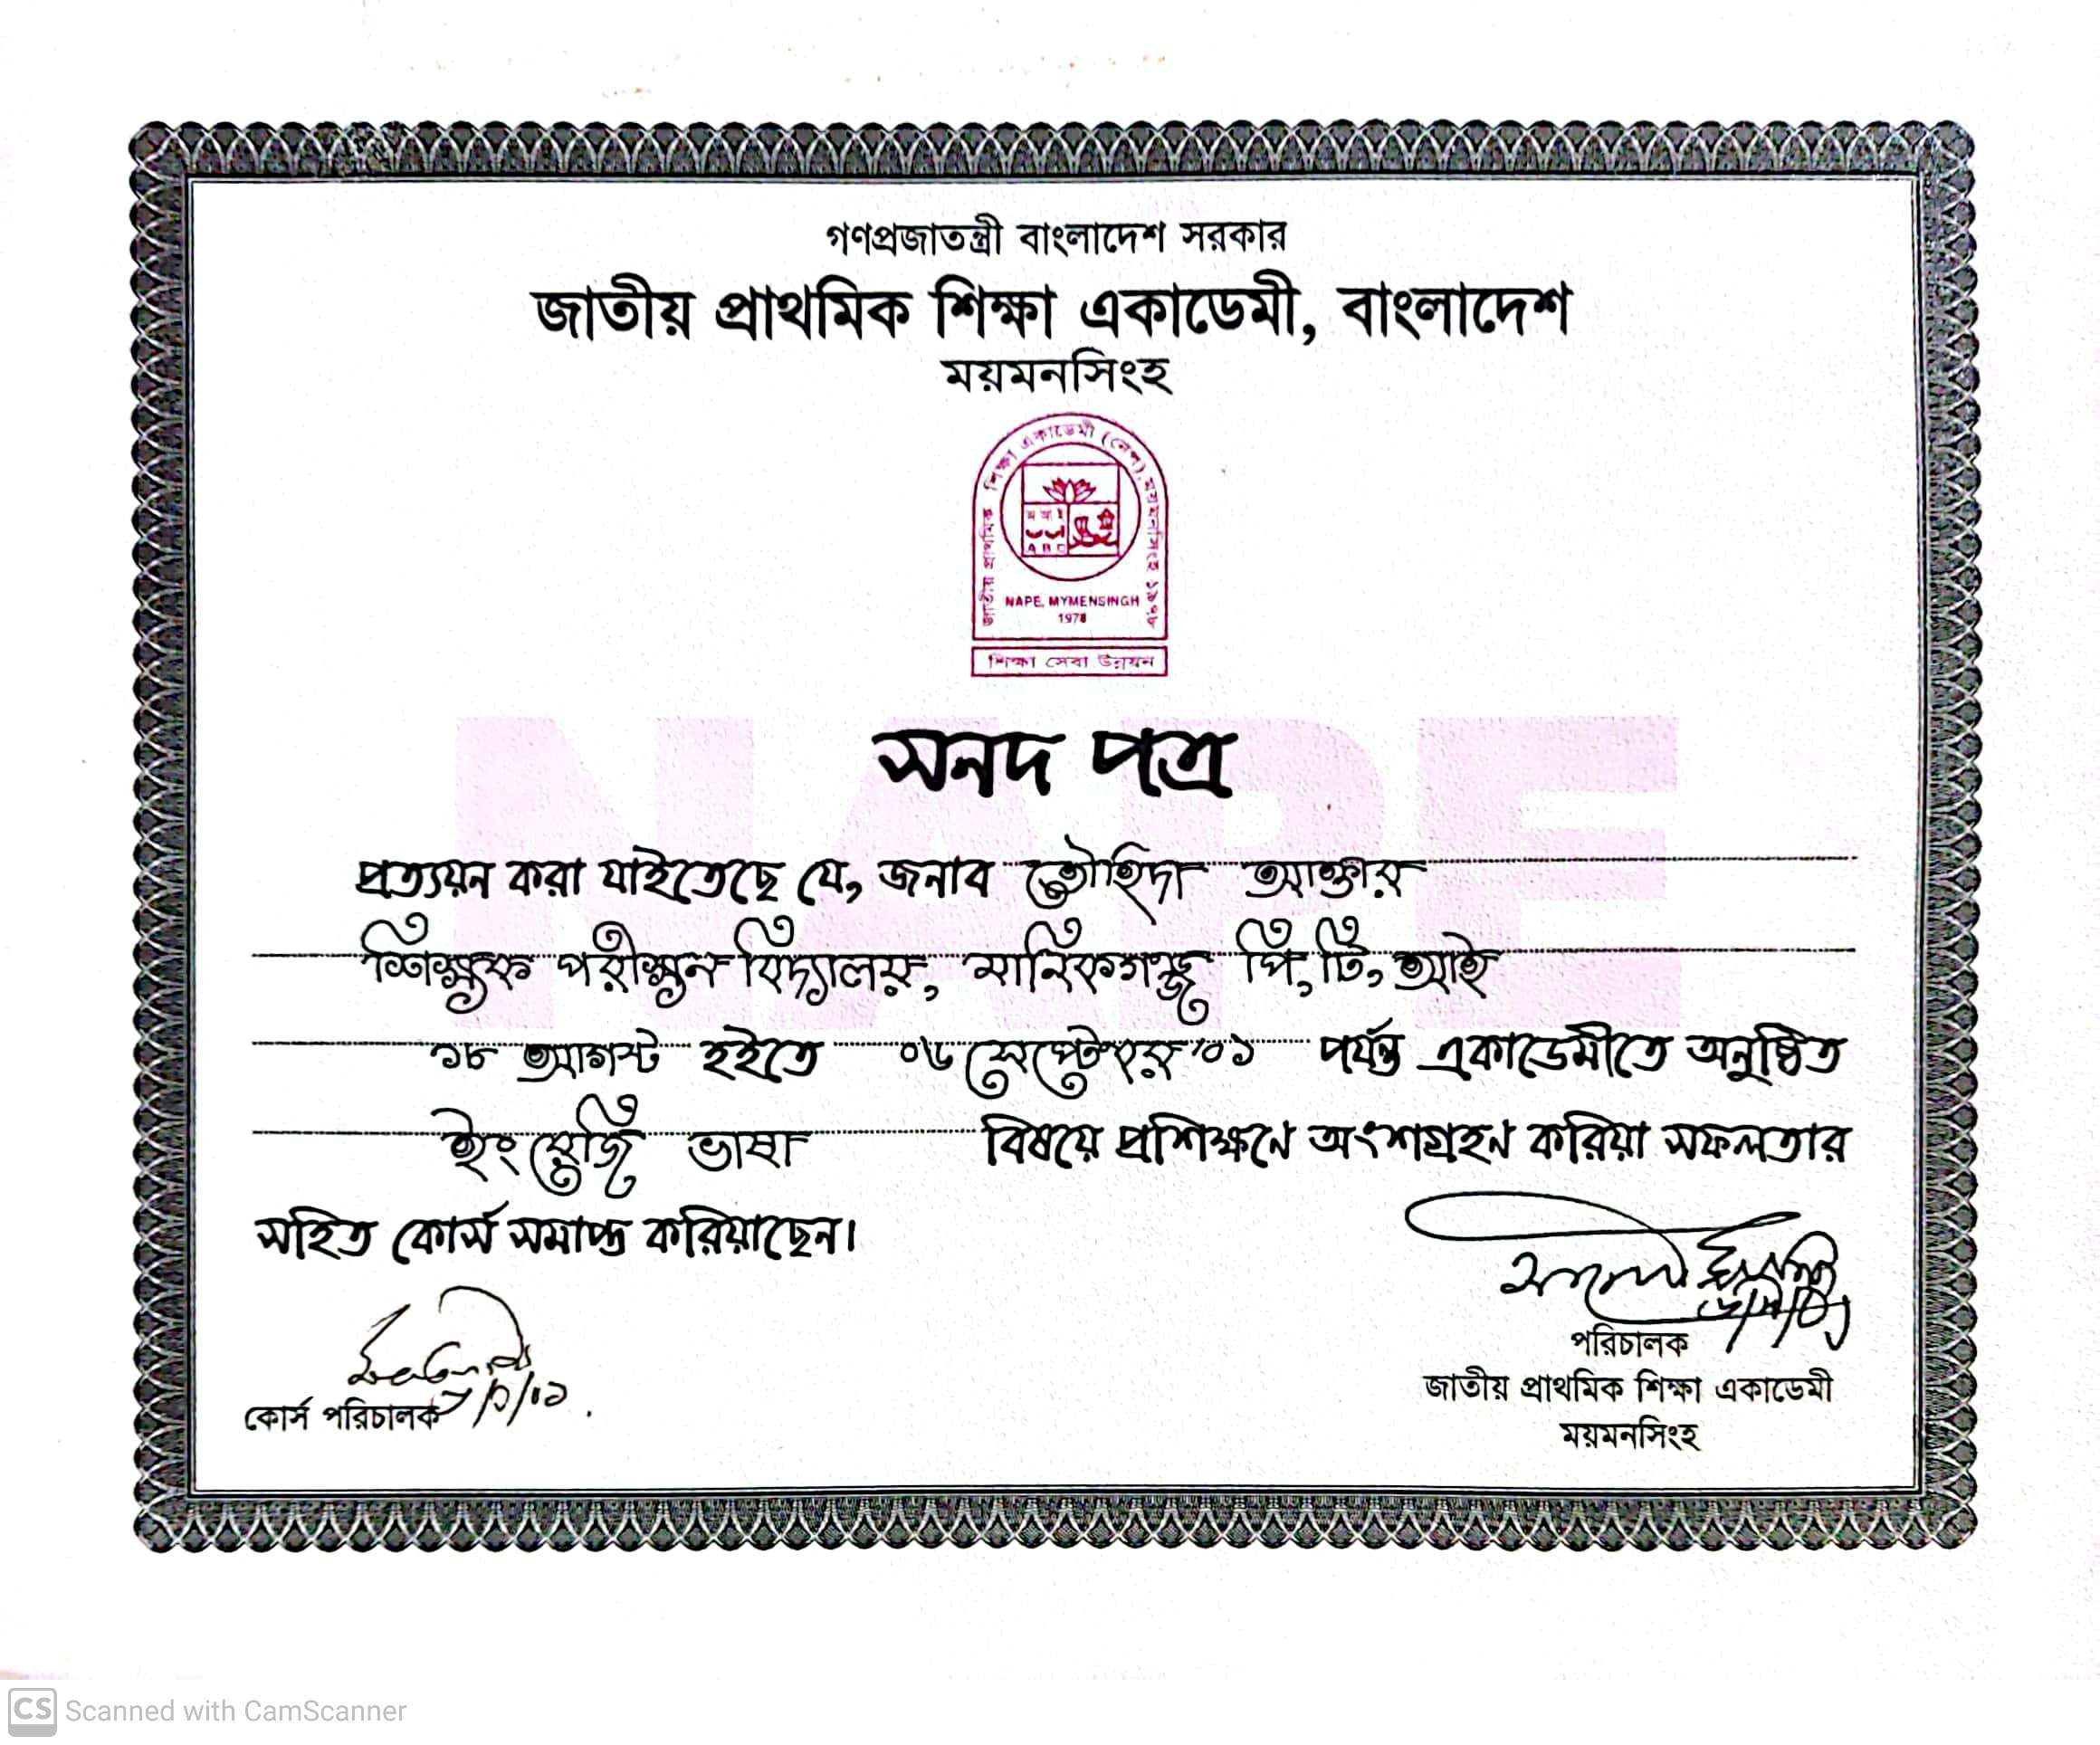 গণপ্রজাতন্ত্রী বাংলাদেশ সরকার
জাতীয় প্রাথমিক শিক্ষা একাডেমী, বাংলাদেশ
ময়মনসিংহ
জাতীয় প্রাথমিক শিক্ষা একাডেমী (নেপ), ময়মনসিংহ ১৯৭৮
অ আ ই
A B C
NAPE, MYMENSINGH
1978
শিক্ষা সেবা উন্নয়ন
NAPE
সনদ পত্র
প্রত্যয়ন করা যাইতেছে যে, জনাব তৌহিদা আক্তার
শিক্ষক পরীক্ষন বিদ্যালয়, মানিকগঞ্জ পি, টি, আই
১৮ আগস্ট হইতে ০৬ সেপ্টেম্বর '০১ পর্যন্ত একাডেমীতে অনুষ্ঠিত
ইংরেজি ভাষা বিষয়ে প্রশিক্ষণে অংশগ্রহন করিয়া সফলতার
সহিত কোর্স সমাপ্ত করিয়াছেন।
কোর্স পরিচালক
পরিচালক
জাতীয় প্রাথমিক শিক্ষা একাডেমী
ময়মনসিংহ
CS Scanned with CamScanner